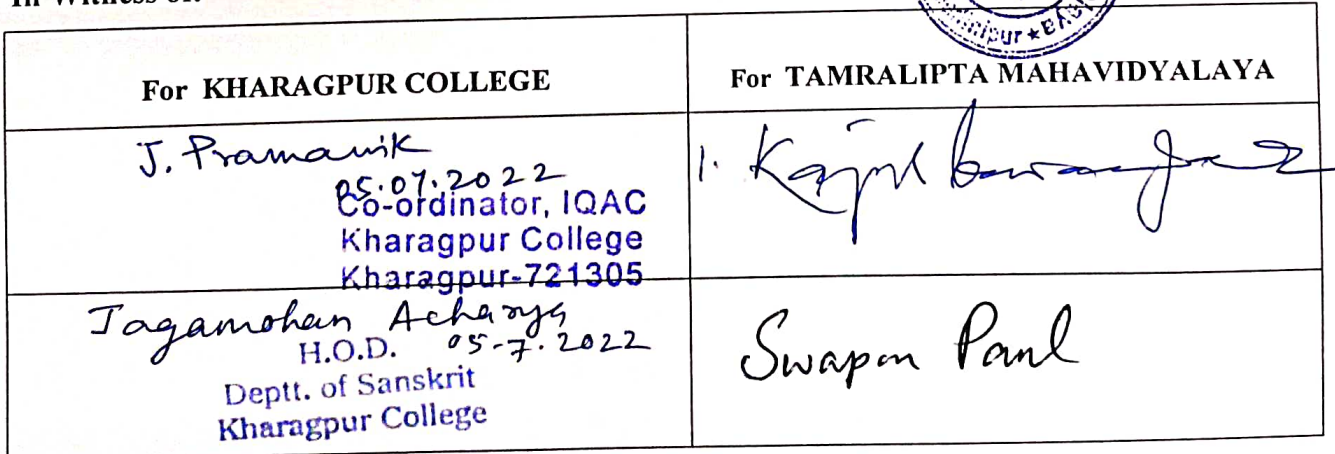 In Witness of:
For KHARAGPUR COLLEGE
For TAMRALIPTA MAHAVIDYALAYA
J. Pramanik
05.07.2022
Co-ordinator, IQAC
Kharagpur College
Kharagpur-721305
1.
Jagamohan Acharya
H.O.D. 05-7.2022
Deptt. of Sanskrit
Kharagpur College
Swapan Paul